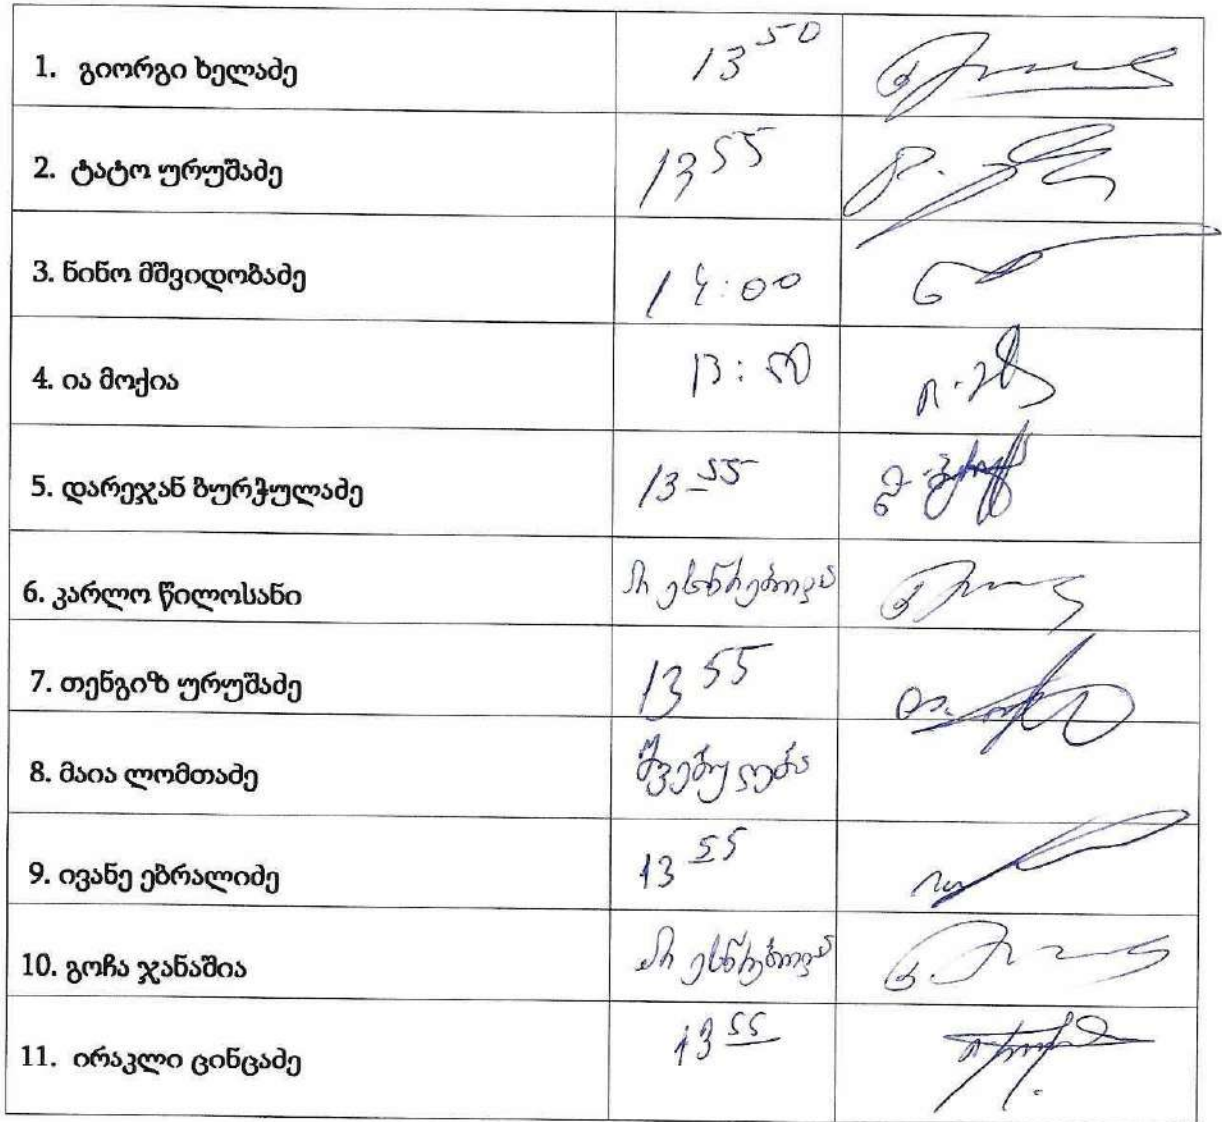 1. გიორგი ხელაძე 13 50
2. ტატო ურუშაძე 13 55
3. ნინო მშვიდობაძე 14:00
4. ია მოქია 13:50
5. დარეჯან ბურჭულაძე 13 55
6. კარლო წილოსანი არ ესწრებოდა
7. თენგიზ ურუშაძე 13 55
8. მაია ლომთაძე შვებულება
9. ივანე ებრალიძე 13 55
10. გოჩა ჯანაშია არ ესწრებოდა
11. ირაკლი ცინცაძე 13 55